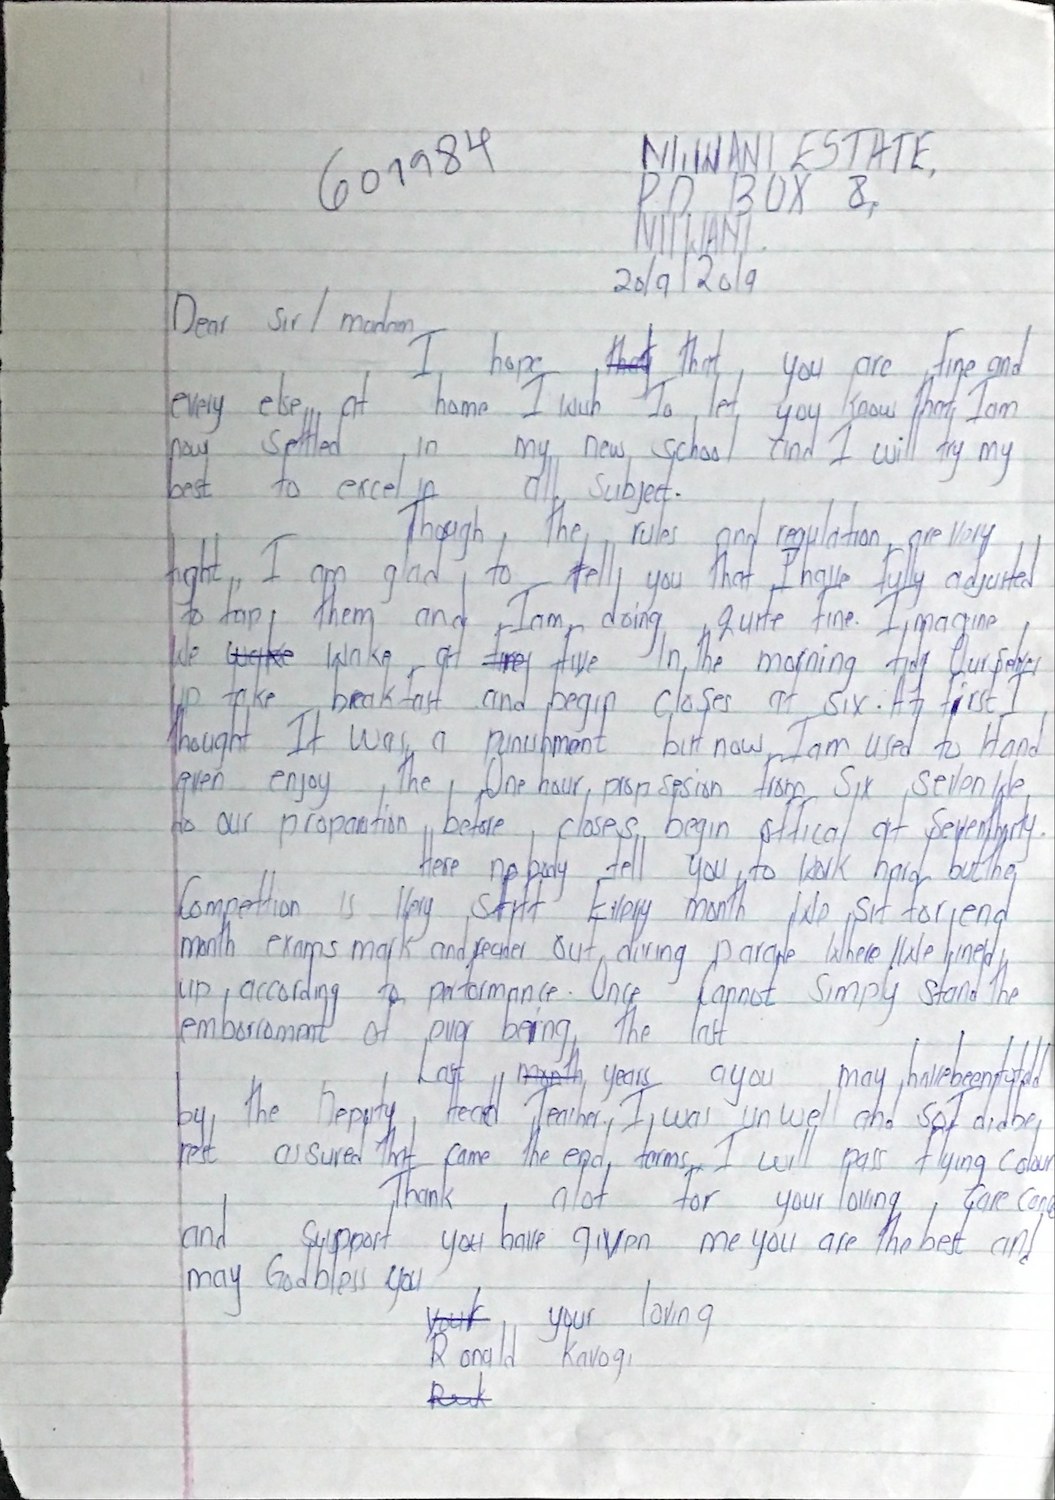 601984
ESTATE,
P.O BOX 8,
20/9/2019
Dear Sir / madam
I hope that that you are fine and
every else at home I wish To let you know that Iam
now settled in my new school and I will try my
best to excel in all subject.
Though the rules and regulation are very
tight, I am glad to tell you that I have fully adjusted
to them and Iam doing quite fine. Imagine
We wake wake at five In the morning Ourselves
up take breakfast and begin closes at six. At first I
thought It was a punishment but now Iam used to it and
even enjoy the One hour prop sesion from Six seven We
do our before closes begin offical at Seventhirty.
Here nobody tell you to work hard but the
Compettion is Very stiff Every month We sit for end
month exams mark and out during parade Where We lined
up according to performance. Once cannot simply stand the
of ever being the last
Last month years you may have been
by the Deputy Head Teacher, I was unwell and so I did be
rest assured that come the end terms I will pass flying colour
Thank alot for your loving care
and support you have given me you are the best and
may God bless you
your your loving
Ronald Kavogi